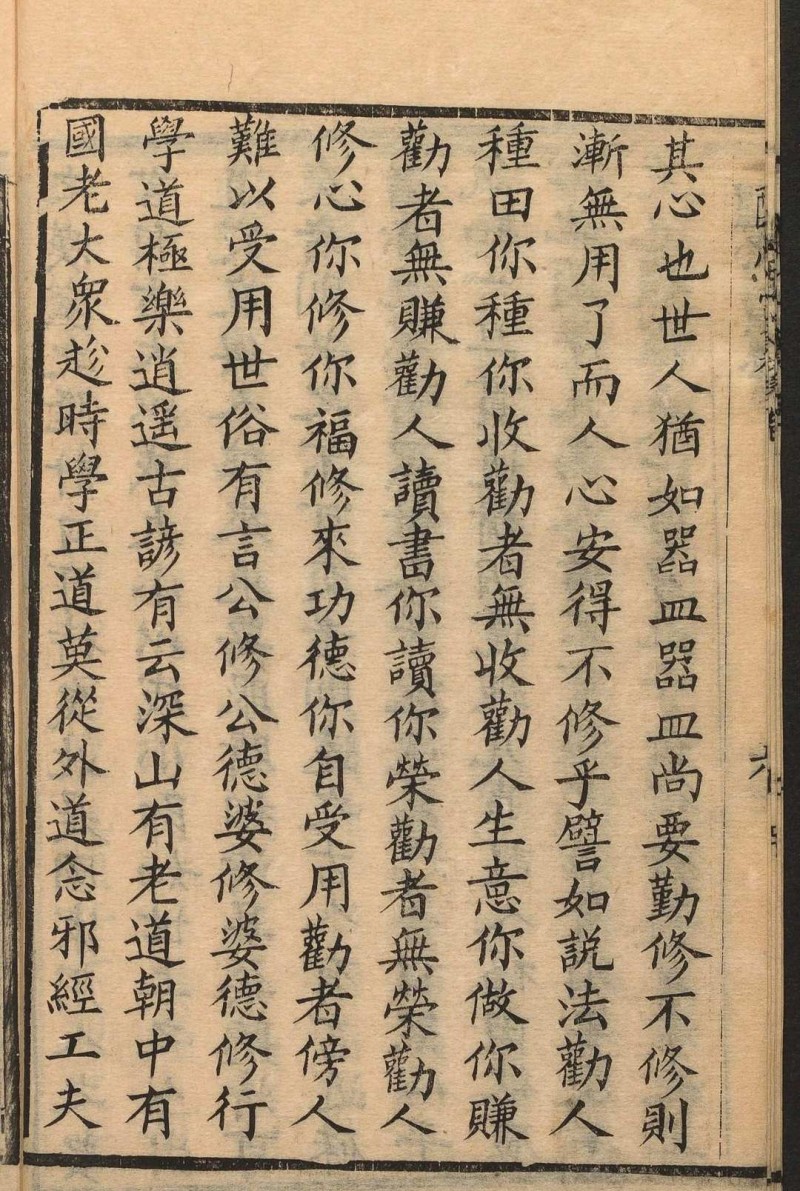 其心也世人猶如器皿器皿尚要勤修不修則
漸無用了而人心安得不修乎譬如説法勸人
種田你種你收勸者無收勸人生意你做你賺
勸者無賺勸人讀書你讀你榮勸者無榮勸人
修心你修你福修來功德你自受用勸者傍人
難以受用世俗有言公修公德婆修婆德修行
學道極樂逍遥古諺有云深山有老道朝中有
國老大衆趁時學正道莫從外道念邪經工夫